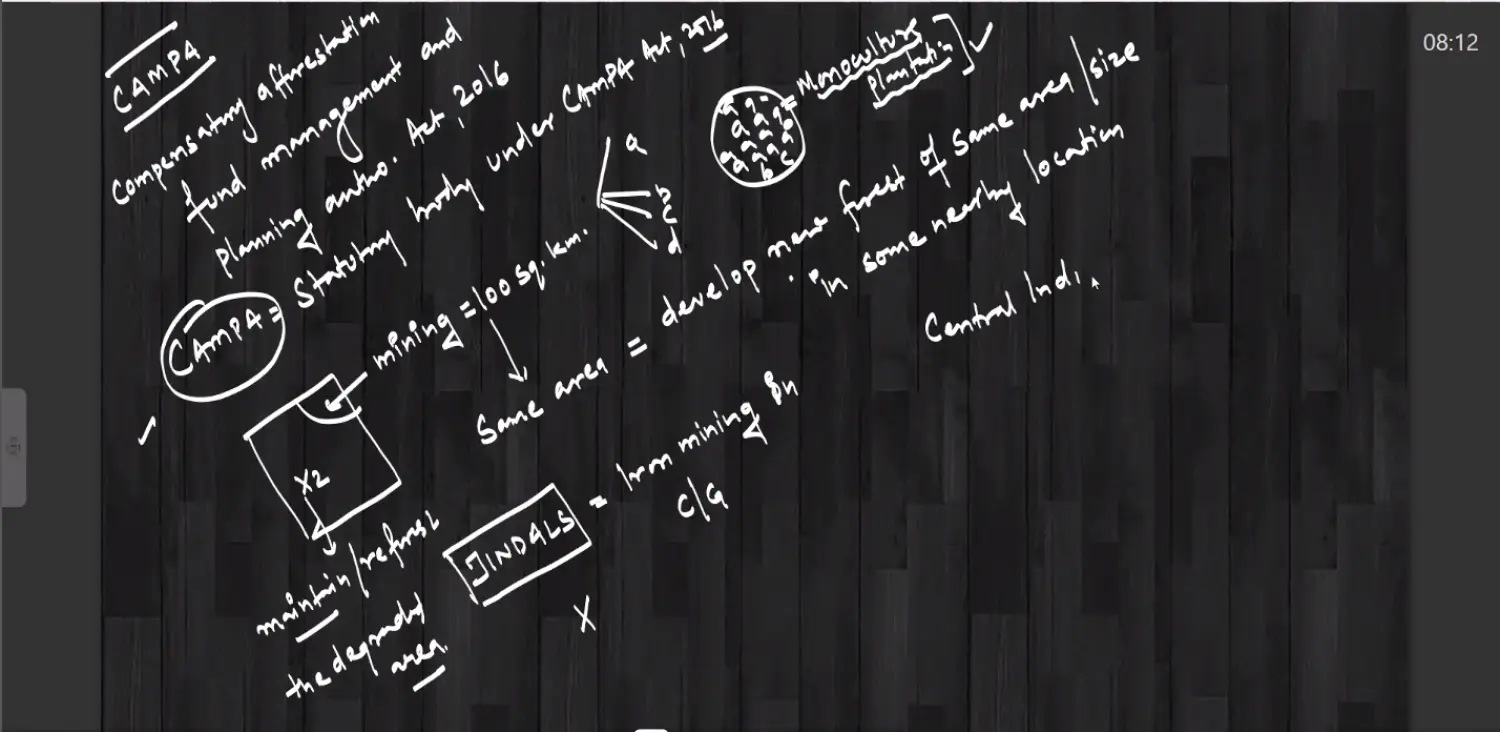 08:12
CAMPA
Compensatory afforestation
fund management and
planning autho. Act, 2016
CAMPA = Statutory body under CAMPA Act, 2016
a
b
c
d
= Monoculture
Plantation
a a a
a a a b
a a a
a a a a
b c
mining = 100 sq. km.
Same area = develop new forest of same area/size
in some nearby location
Central Indi
X2
maintain/reforest
the degraded
area.
JINDALS = Iron mining in
C/G
X